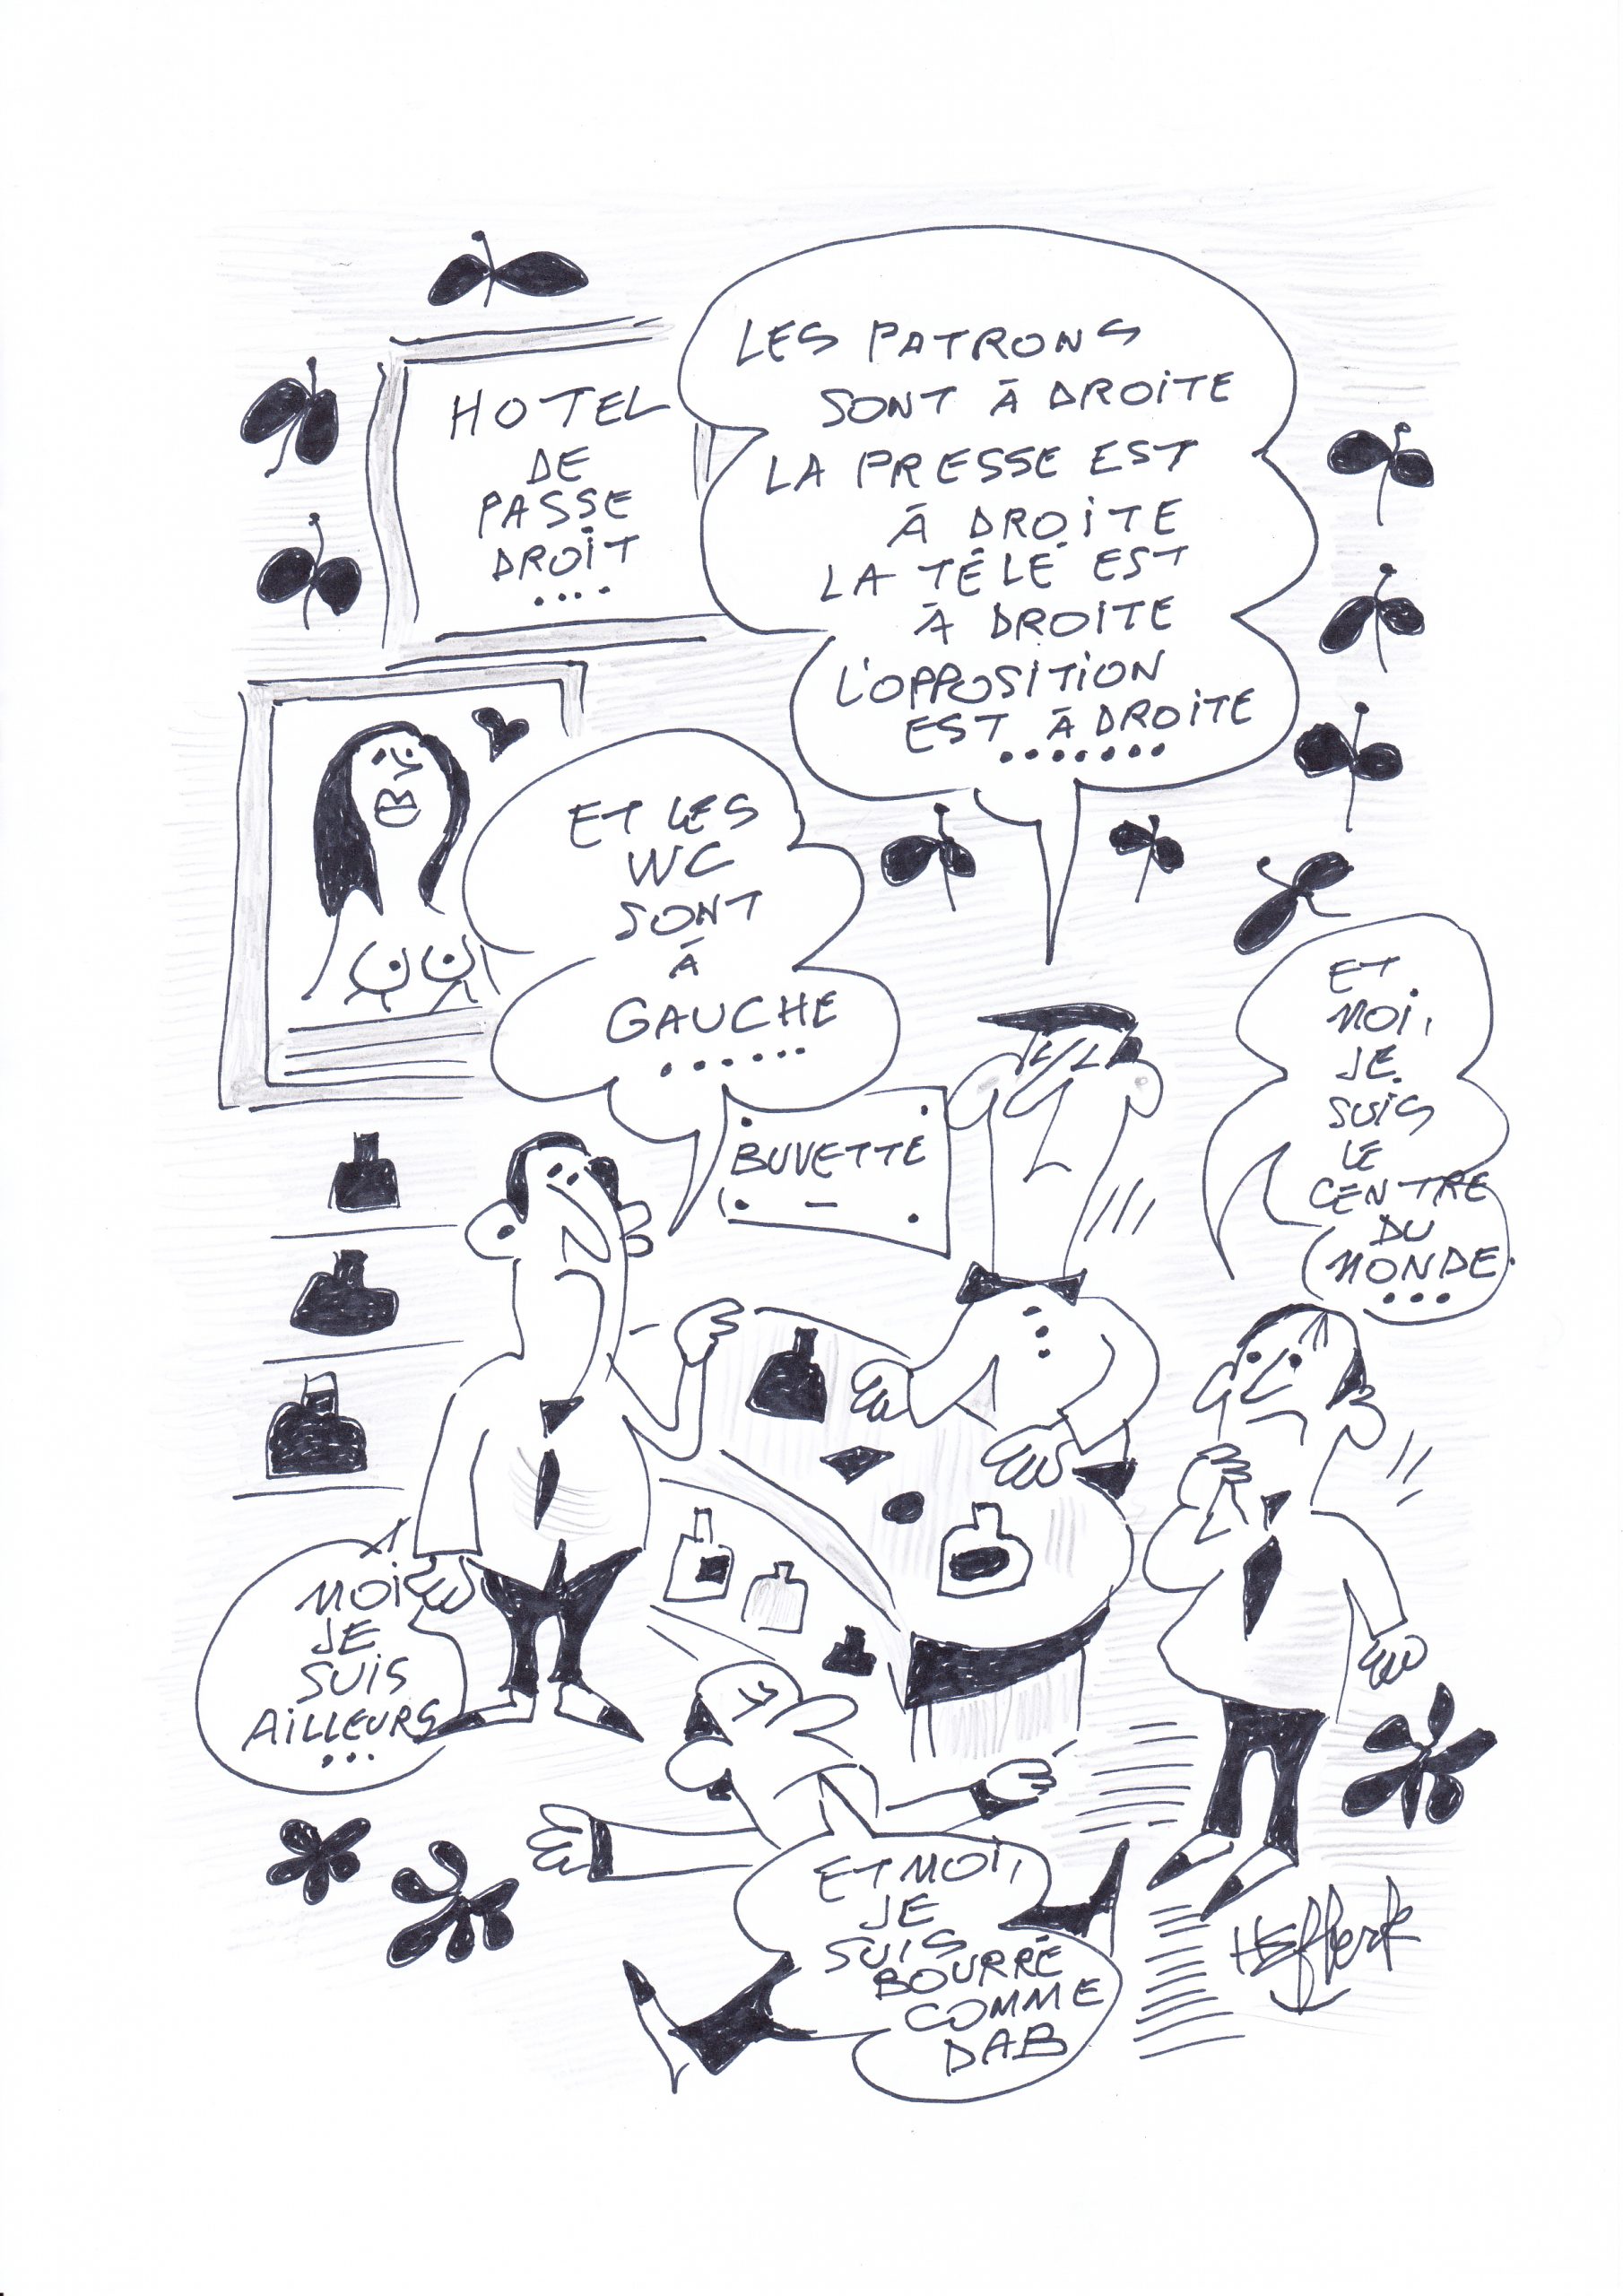 HOTEL
DE
PASSE
DROIT
....
LES PATRONS
SONT À DROITE
LA PRESSE EST
À DROITE
LA TÉLÉ EST
À DROITE
L'OPPOSITION
EST À DROITE
.......
ET LES
WC
SONT
À
GAUCHE
......
BUVETTE
ET
MOI,
JE
SUIS
LE
CENTRE
DU
MONDE.
...
MOI
JE
SUIS
AILLEURS
...
ET MOI,
JE
SUIS
BOURRÉ
COMME
DAB